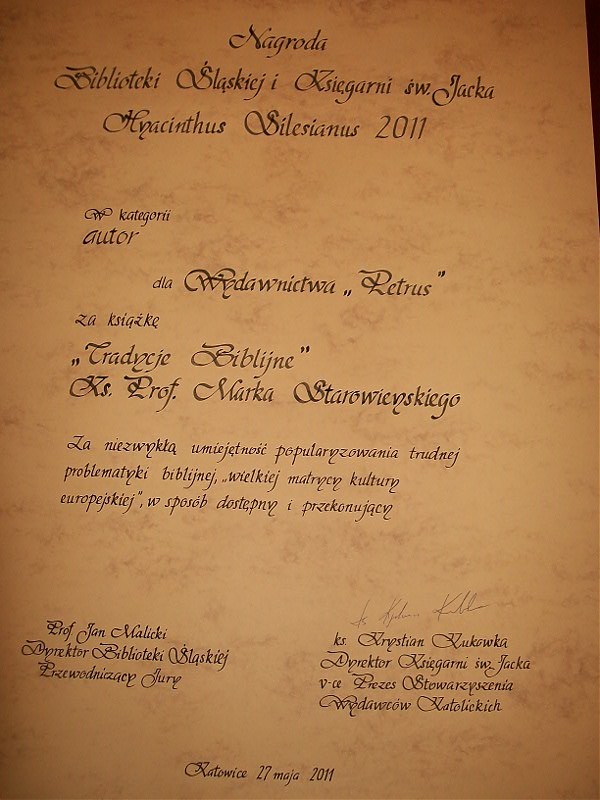 Nagroda
Biblioteki Śląskiej i Księgarni św. Jacka
Hyacinthus Silesianus 2011
W kategorii
autor
dla Wydawnictwa „Petrus”
za książkę
„Tradycje Biblijne”
Ks. Prof. Marka Starowieyskiego
Za niezwykłą umiejętność popularyzowania trudnej
problematyki biblijnej, „wielkiej matrycy kultury
europejskiej”, w sposób dostępny i przekonujący
Prof. Jan Malicki
Dyrektor Biblioteki Śląskiej
Przewodniczący Jury
ks. Krystian Kukowka
Dyrektor Księgarni św. Jacka
v-ce Prezes Stowarzyszenia
Wydawców Katolickich
Katowice 27 maja 2011